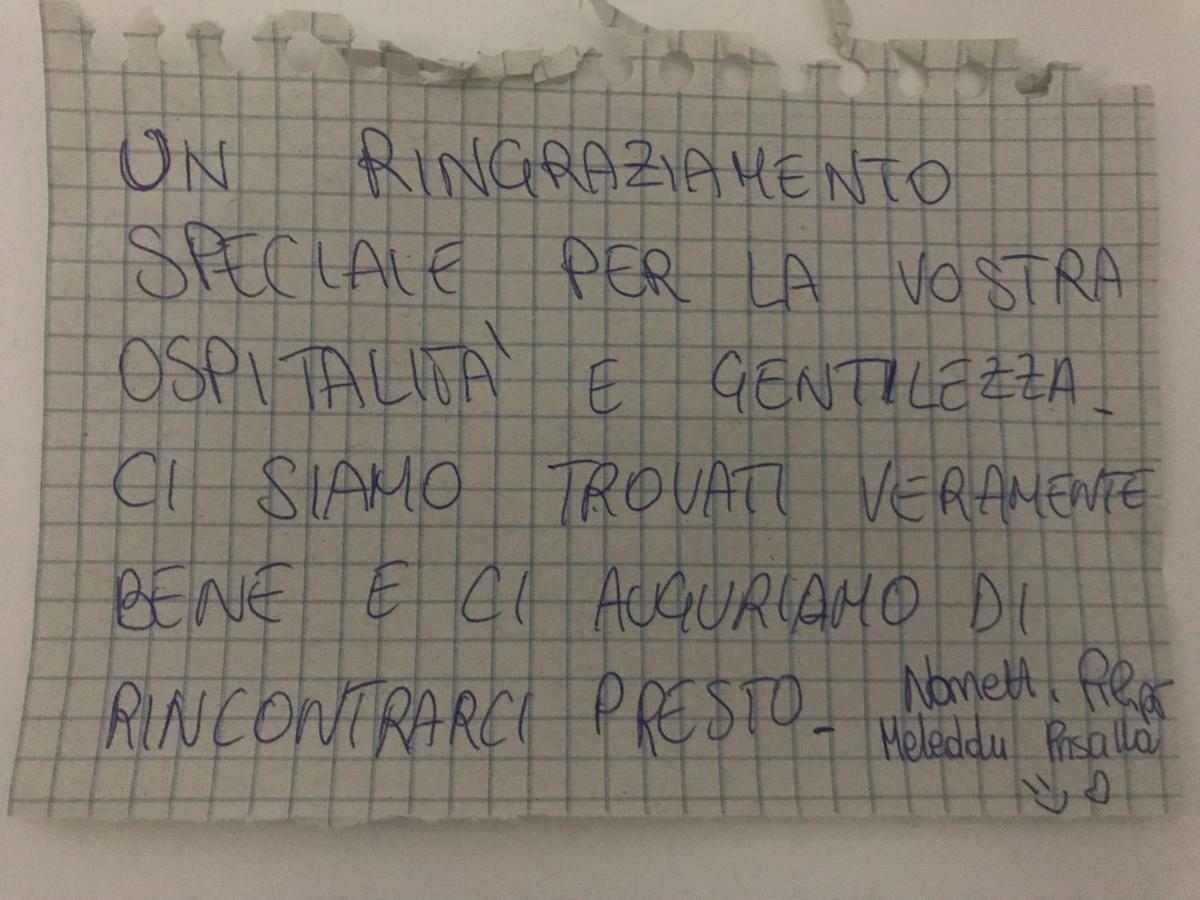 UN RINGRAZIAMENTO
SPECIALE PER LA VOSTRA
OSPITALITÀ E GENTILEZZA_
CI SIAMO TROVATI VERAMENTE
BENE E CI AUGURIAMO DI
RINCONTRARCI PRESTO_
Meleddu